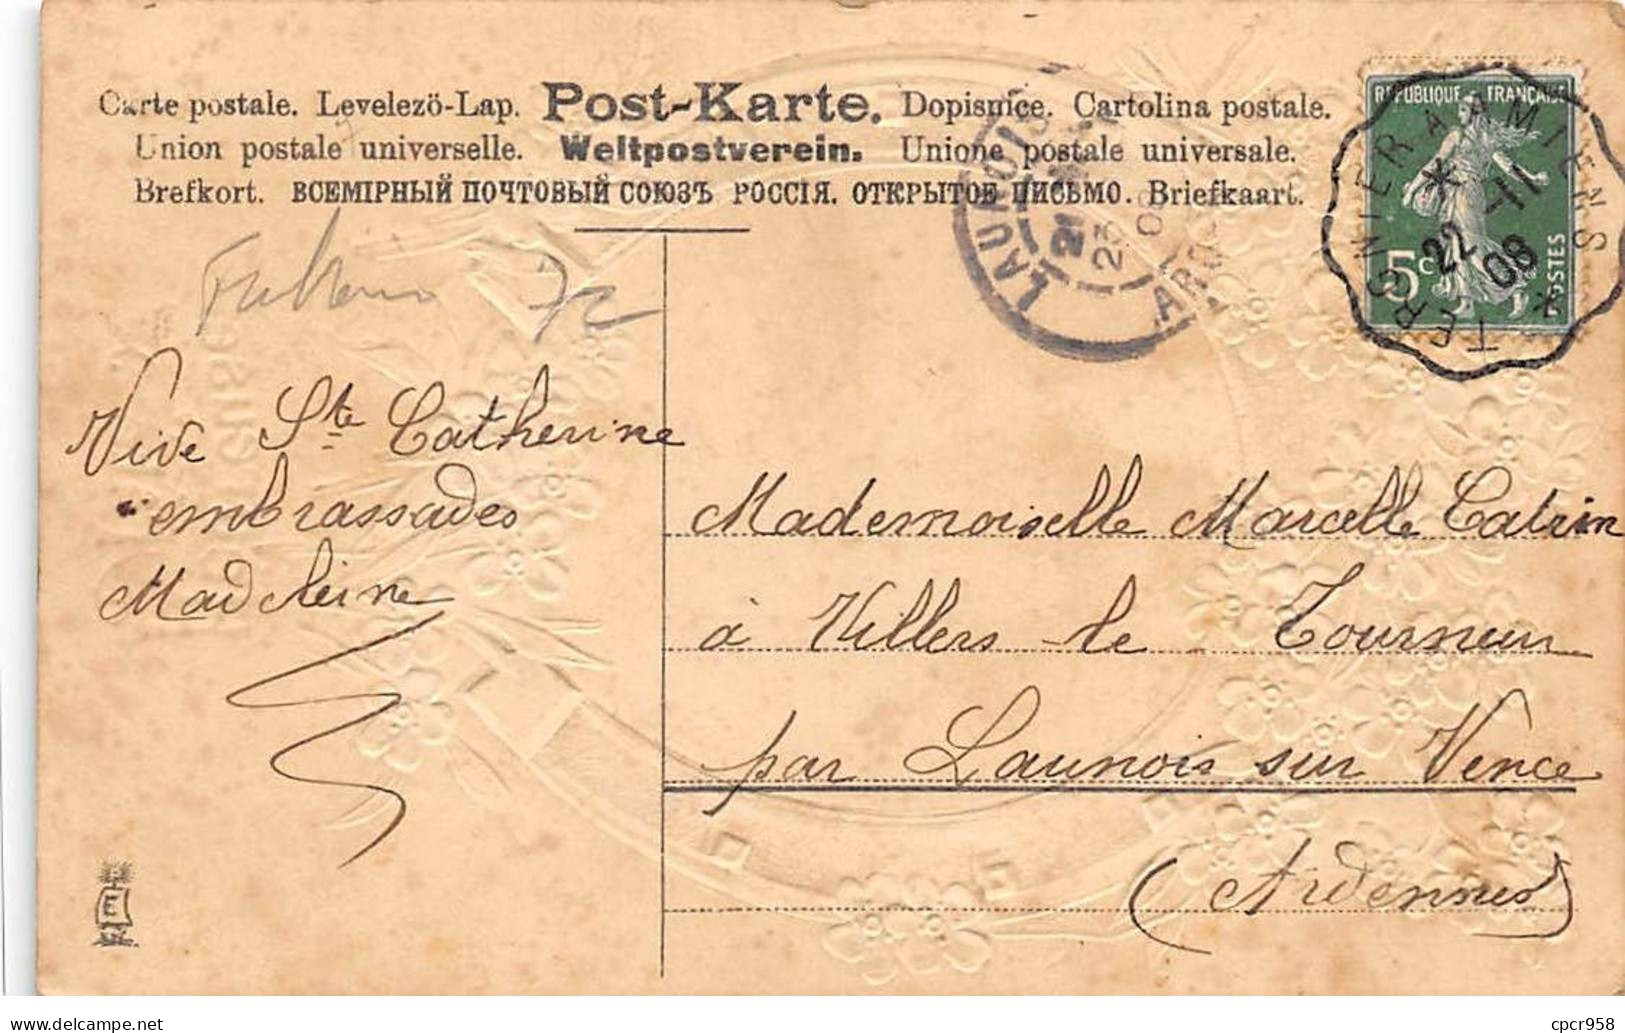 Carte postale. Levelezö-Lap. Post-Karte. Dopisnice. Cartolina postale.
Union postale universelle. Weltpostverein. Unione postale universale.
Brefkort. ВСЕМІРНЫЙ ПОЧТОВЫЙ СОЮЗЪ РОССІЯ. ОТКРЫТОЕ ПИСЬМО. Briefkaart.
REPUBLIQUE FRANÇAISE
5c
POSTES
TERGNIER A AMIENS
22 -11
08
LAUNOIS
21
23
08
72
Vive Ste Catherine
embrassades
Madeleine
Mademoiselle Marcelle Catrin
à Villers-le Tourneur
par Launois sur Vence
(Ardennes)
cpcr958